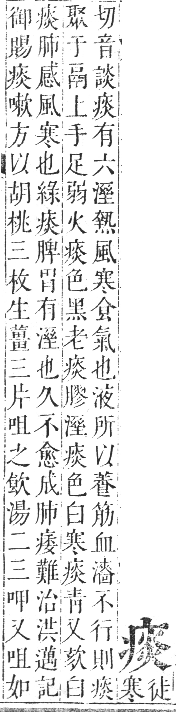 痰徒
寒
切音談痰有六溼熱風寒食氣也液所以養筋血濇不行則痰
聚于鬲上手足弱火痰色黑老痰膠溼痰色白寒痰青又欬白
痰肺感風寒也綠痰脾胃有溼也久不愈成肺痿難治洪邁記
御賜痰嗽方以胡桃三枚生薑三片咀之飲湯二三呷又咀如